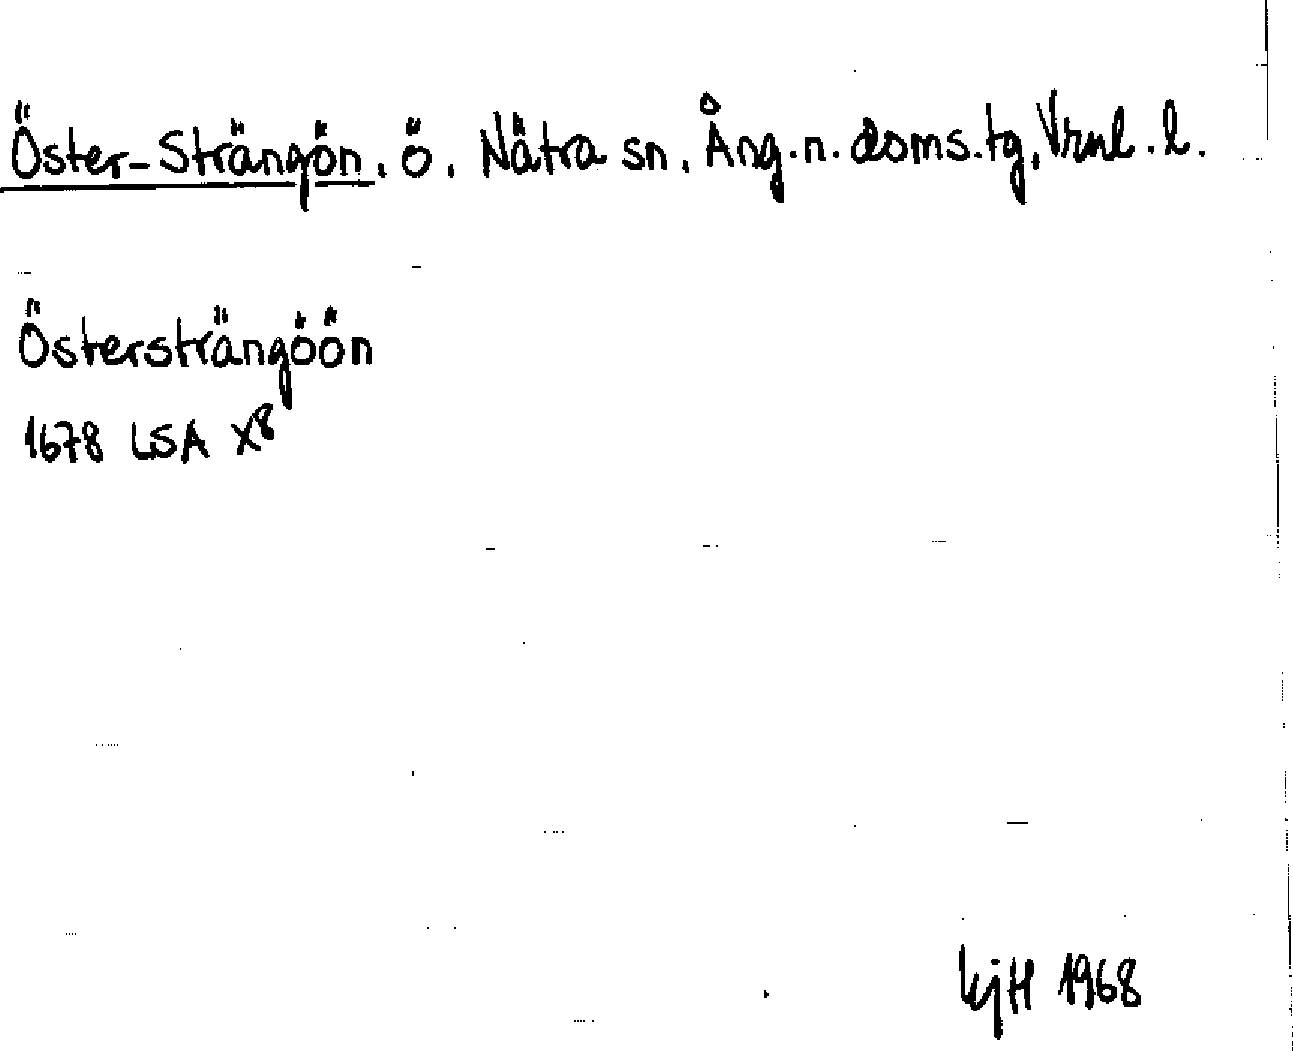 Öster-Strängön, ö, Nätra sn, Ång.n.doms.tg, Vrnl.l.
Österströngöön
1678 LSA X8
KjH 1968